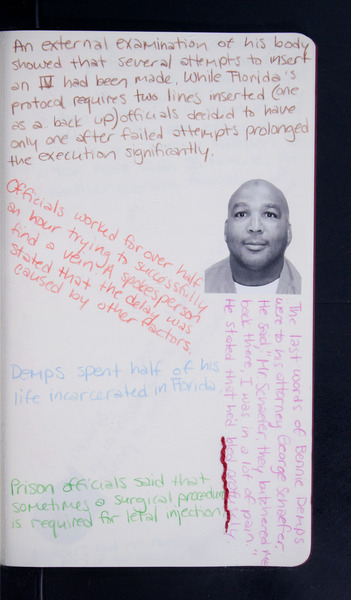 An external examination of his body
showed that several attempts to insert
an IV had been made. While Florida's
protocol requires two lines inserted (one
as a back up) officials decided to have
only one after failed attempts prolonged
the execution significantly.
Officials worked for over half
an hour trying to successfully
find a vein. A spokesperson
stated that the delay was
caused by other factors.
The last words of Bennie Demps
were to his attorney George Schaefer.
He said "Mr. Schaefer, they butchered me
back there, I was in a lot of pain."
He stated that he'd bled profusely.
Demps spent half of his
life incarcerated in Florida.
Prison officials said that
sometimes a surgical procedure
is required for letal injection.